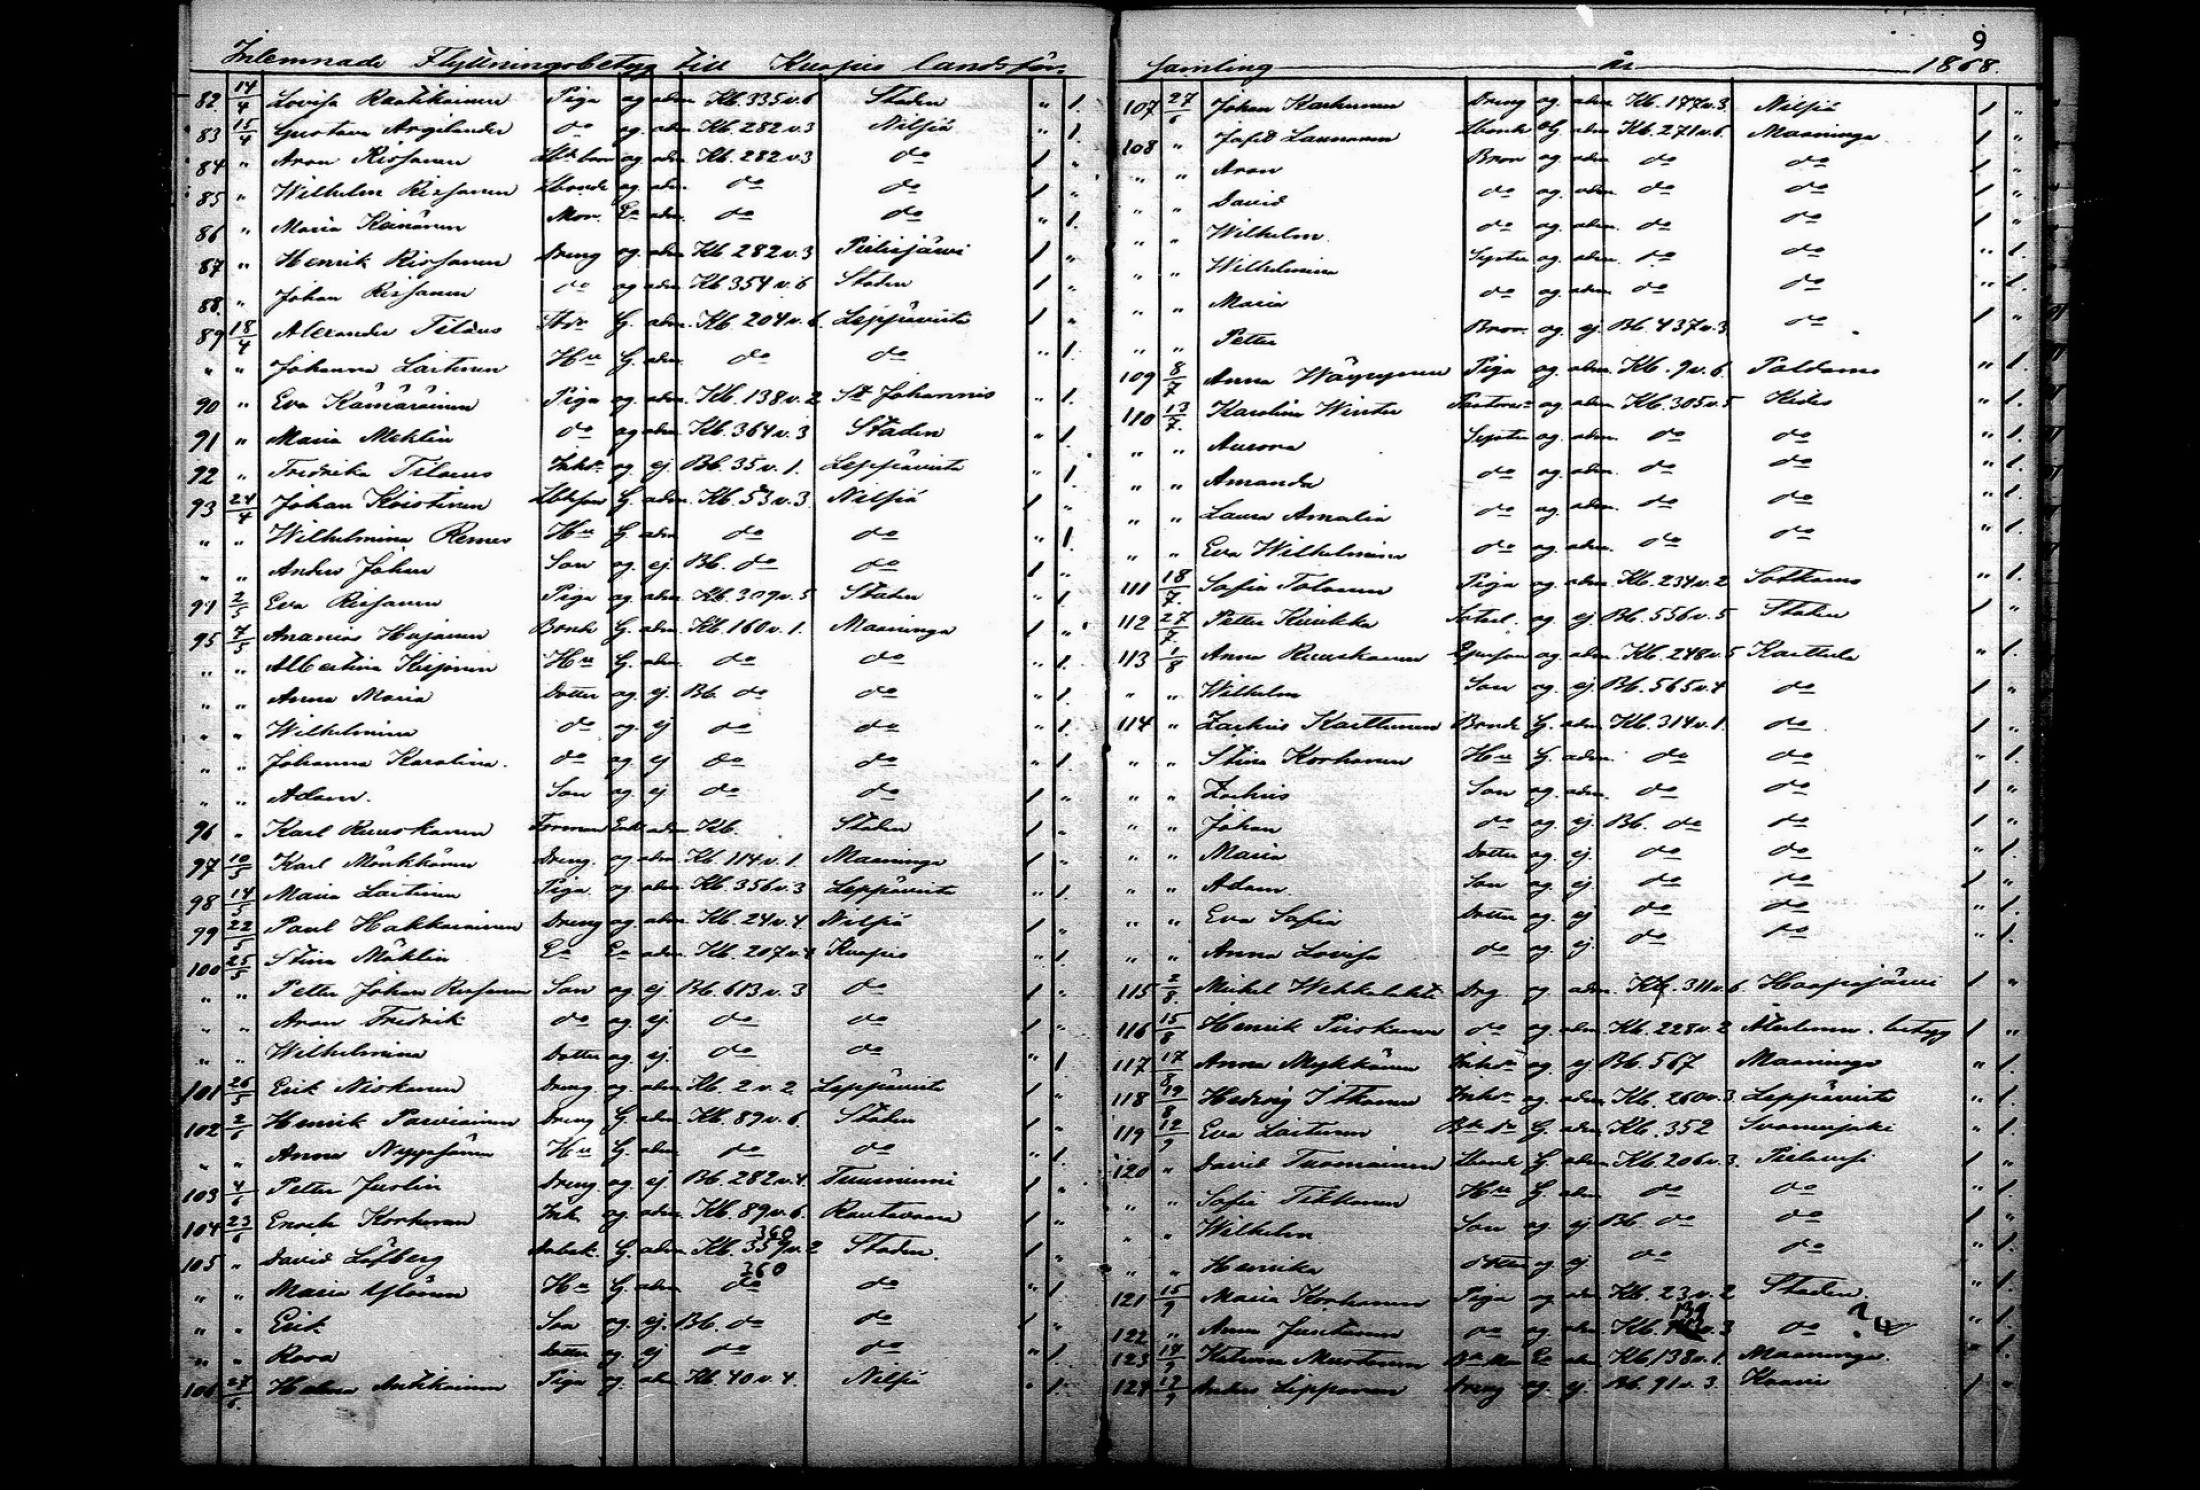 Inlemnade Flyttningsbetyg till Kuopio landsför-
82 14/4 Lovisa Raatikainen Piga og adm. Kb. 335 v. 6 Staden " 1.
83 15/4 Gustava Argilander do og adm. Kb. 282 v. 3 Nilsiä " 1.
84 " Aron Rissanen og adm. Kb. 282 v. 3 do 1 "
85 " Wilhelm Rissanen Lbonde og adm. do do 1 "
86 " Maria Keinänen Mor. Ea adm. do do " 1.
87 " Henrik Rissanen Dreng og adm. Kb. 282 v. 3 Pielisjärvi 1 "
88 " Johan Rissanen do og adm. Kb. 354 v. 6 Staden 1 "
89 18/4 Alexander Tilæus G. adm. Kb. 204 v. 6. Leppävirta 1 "
" " Johanna Laitinen Hu G. adm. do do " 1.
90 " Eva Kämäräinen Piga og adm. Kb. 138 v. 2 St Johannis " 1.
91 " Maria Meklin do og adm. Kb. 364 v. 3 Staden " 1.
92 " Fredrika Tilæus og. ej. Bb. 35 v. 1. Leppävirta " 1.
93 24/4 Johan Koistinen G. adm. Kb. 53 v. 3 Nilsiä 1 "
" " Wilhelmina Remes Hu G. adm. do do " 1.
" " Anders Johan Son og. ej Bb. do do 1 "
94 2/5 Eva Rissanen Piga og adm. Kb. 309 v. 5 Staden " 1.
95 7/5 Ananias Hujanen Bonde G. adm. Kb. 160 v. 1. Maaninga 1 "
" " Albertina Hu G. adm. do do " 1.
" " Anna Maria Dotter og. ej. Bb. do do " 1.
" " Wilhelmina do og. ej do do " 1.
" " Johanna Karolina. do og. ej do do " 1.
" " Adam. Son og. ej do do 1 "
96 " Karl Ruuskanen Forman Enk. adm. Kb. Staden 1 "
97 10/5 Karl Mönkkönen Dreng. og adm. Kb. 114 v. 1. Maaninga 1 "
98 14/5 Maria Laitinen Piga og. adm. Kb. 356 v. 3 Leppävirta " 1.
99 22/5 Paul Hakkarainen Dreng og. adm. Kb. 24 v. 4 Nilsiä 1 "
100 25/5 Stina Mäklin Ea Ea adm. Kb. 207 v. 4 Kuopio " 1.
" " Petter Johan Rissanen Son og. ej Bb. 613 v. 3 do 1 "
" " Aron Fredrik do og. ej. do do 1 "
" " Wilhelmina Dotter og. ej. do do " 1
101 26/5 Erik Niskanen Dreng. og. adm. Kb. 2 v. 2. Leppävirta 1 "
102 2/6 Henrik Parviainen Dreng G. adm. Kb. 89 v. 6. Staden 1 "
" " Anna Hu G. adm. do do " 1.
103 4/6 Petter Juslin Dreng. og. ej Bb. 282 v. 4. 1 "
104 23/6 Enrik Korhonen Inh. og. adm. Kb. 89 v. 6. Rautavaara 1 "
105 " David Löfberg Arbetk. G. adm. Kb. 359 v. 2 360 Staden. 1 "
" " Maria Hu G. adm. 360 do do " 1
" " Erik Son og. ej. Bb. do do 1 "
" " Rosa Dotter og. ej do do " 1.
106 27/6. Helena Antikainen Piga og. adm. Kb. 40 v. 4. Nilsiä " 1.
9
samling år 1868.
107 27/6 Johan Karhunen Dreng og. adm. Kb. 187 v. 3. Nilsiä 1 "
108 " Josef Launonen Lbonde og. adm. Kb. 271 v. 6. Maaninga 1 "
" " Aron Bror og. adm. do do 1 "
" " David do og. adm. do do 1 "
" " Wilhelm. do og. adm. do do 1 "
" " Wilhelmina Syster og. adm. do do " 1.
" " Maria do og. adm. do do " 1.
" " Petter Bror. og. ej. Bb. 437 v. 3 do 1 "
109 8/7 Anna Wäyrynen Piga og. adm. Kb. 9 v. 6. Paldamo " 1.
110 13/7. Karolina Winter og. adm. Kb. 305 v. 5 Kides " 1.
" " Aurora Syster og. adm. do do " 1.
" " Amanda do og. adm. do do " 1.
" " Laura Amalia do og. adm. do do " 1.
" " Eva Wilhelmina do og. adm. do do " 1.
111 18/7. Sofia Tolonen Piga og. adm. Kb. 234 v. 2 Sotkamo " 1.
112 27/7. Petter Kinikka og. ej Bb. 556 v. 5 Staden 1 "
113 1/8 Anna Ruuskanen og. adm. Kb. 248 v. 5 Karttula " 1.
" " Wilhelm Son og. ej. Bb. 565 v. 4 do 1 "
114 " Zachris Karttunen Bonde G. adm. Kb. 314 v. 1. do 1 "
" " Stina Korhonen Hu G. adm. do do " 1.
" " Zachris Son og. adm. do do 1 "
" " Johan do og. ej. Bb. do do 1 "
" " Maria Dotter og. ej. do do " 1.
" " Adam. Son og. ej. do do 1 "
" " Eva Sofia Dotter og. ej do do " 1.
" " Anna Lovisa do og. ej. do do " 1.
115 2/8. Mickel Wekkolahti Drg. og. adm. Kb. 311 v. 6 Haapajärvi 1 "
116 15/8 Henrik Piiskanen do og. adm. Kb. 228 v. 2 Återlemn. betyg 1 "
117 17/8 Anna Mykkänen og. ej Bb. 567 Maaninga " 1.
118 19/8 Hedvig Itkonen og. adm. Kb. 260 v. 3. Leppävirta " 1.
119 12/9 Eva Laitinen G. adm. Kb. 352 Suonenjoki " 1.
120 " David Tuomainen Lbonde G. adm. Kb. 206 v. 3. Pielavesi 1 "
" " Sofia Tikkanen Hu G. adm. do do " 1.
" " Wilhelm Son og. ej Bb. do do 1 "
" " Henrika dotter og. ej. do do " 1.
121 15/9 Maria Korhonen Piga og adm. Kb. 23 v. 2 Staden. " 1.
122 " Anna do og. adm. Kb. 139 v. 3 do " 1.
123 17/9 Katrina Mustonen Ea adm. Kb. 138 v. 1. Maaninga. " 1.
124 17/9 Anders Lipponen Dreng og. ej. Bb. 91 v. 3. Kaavi 1 "